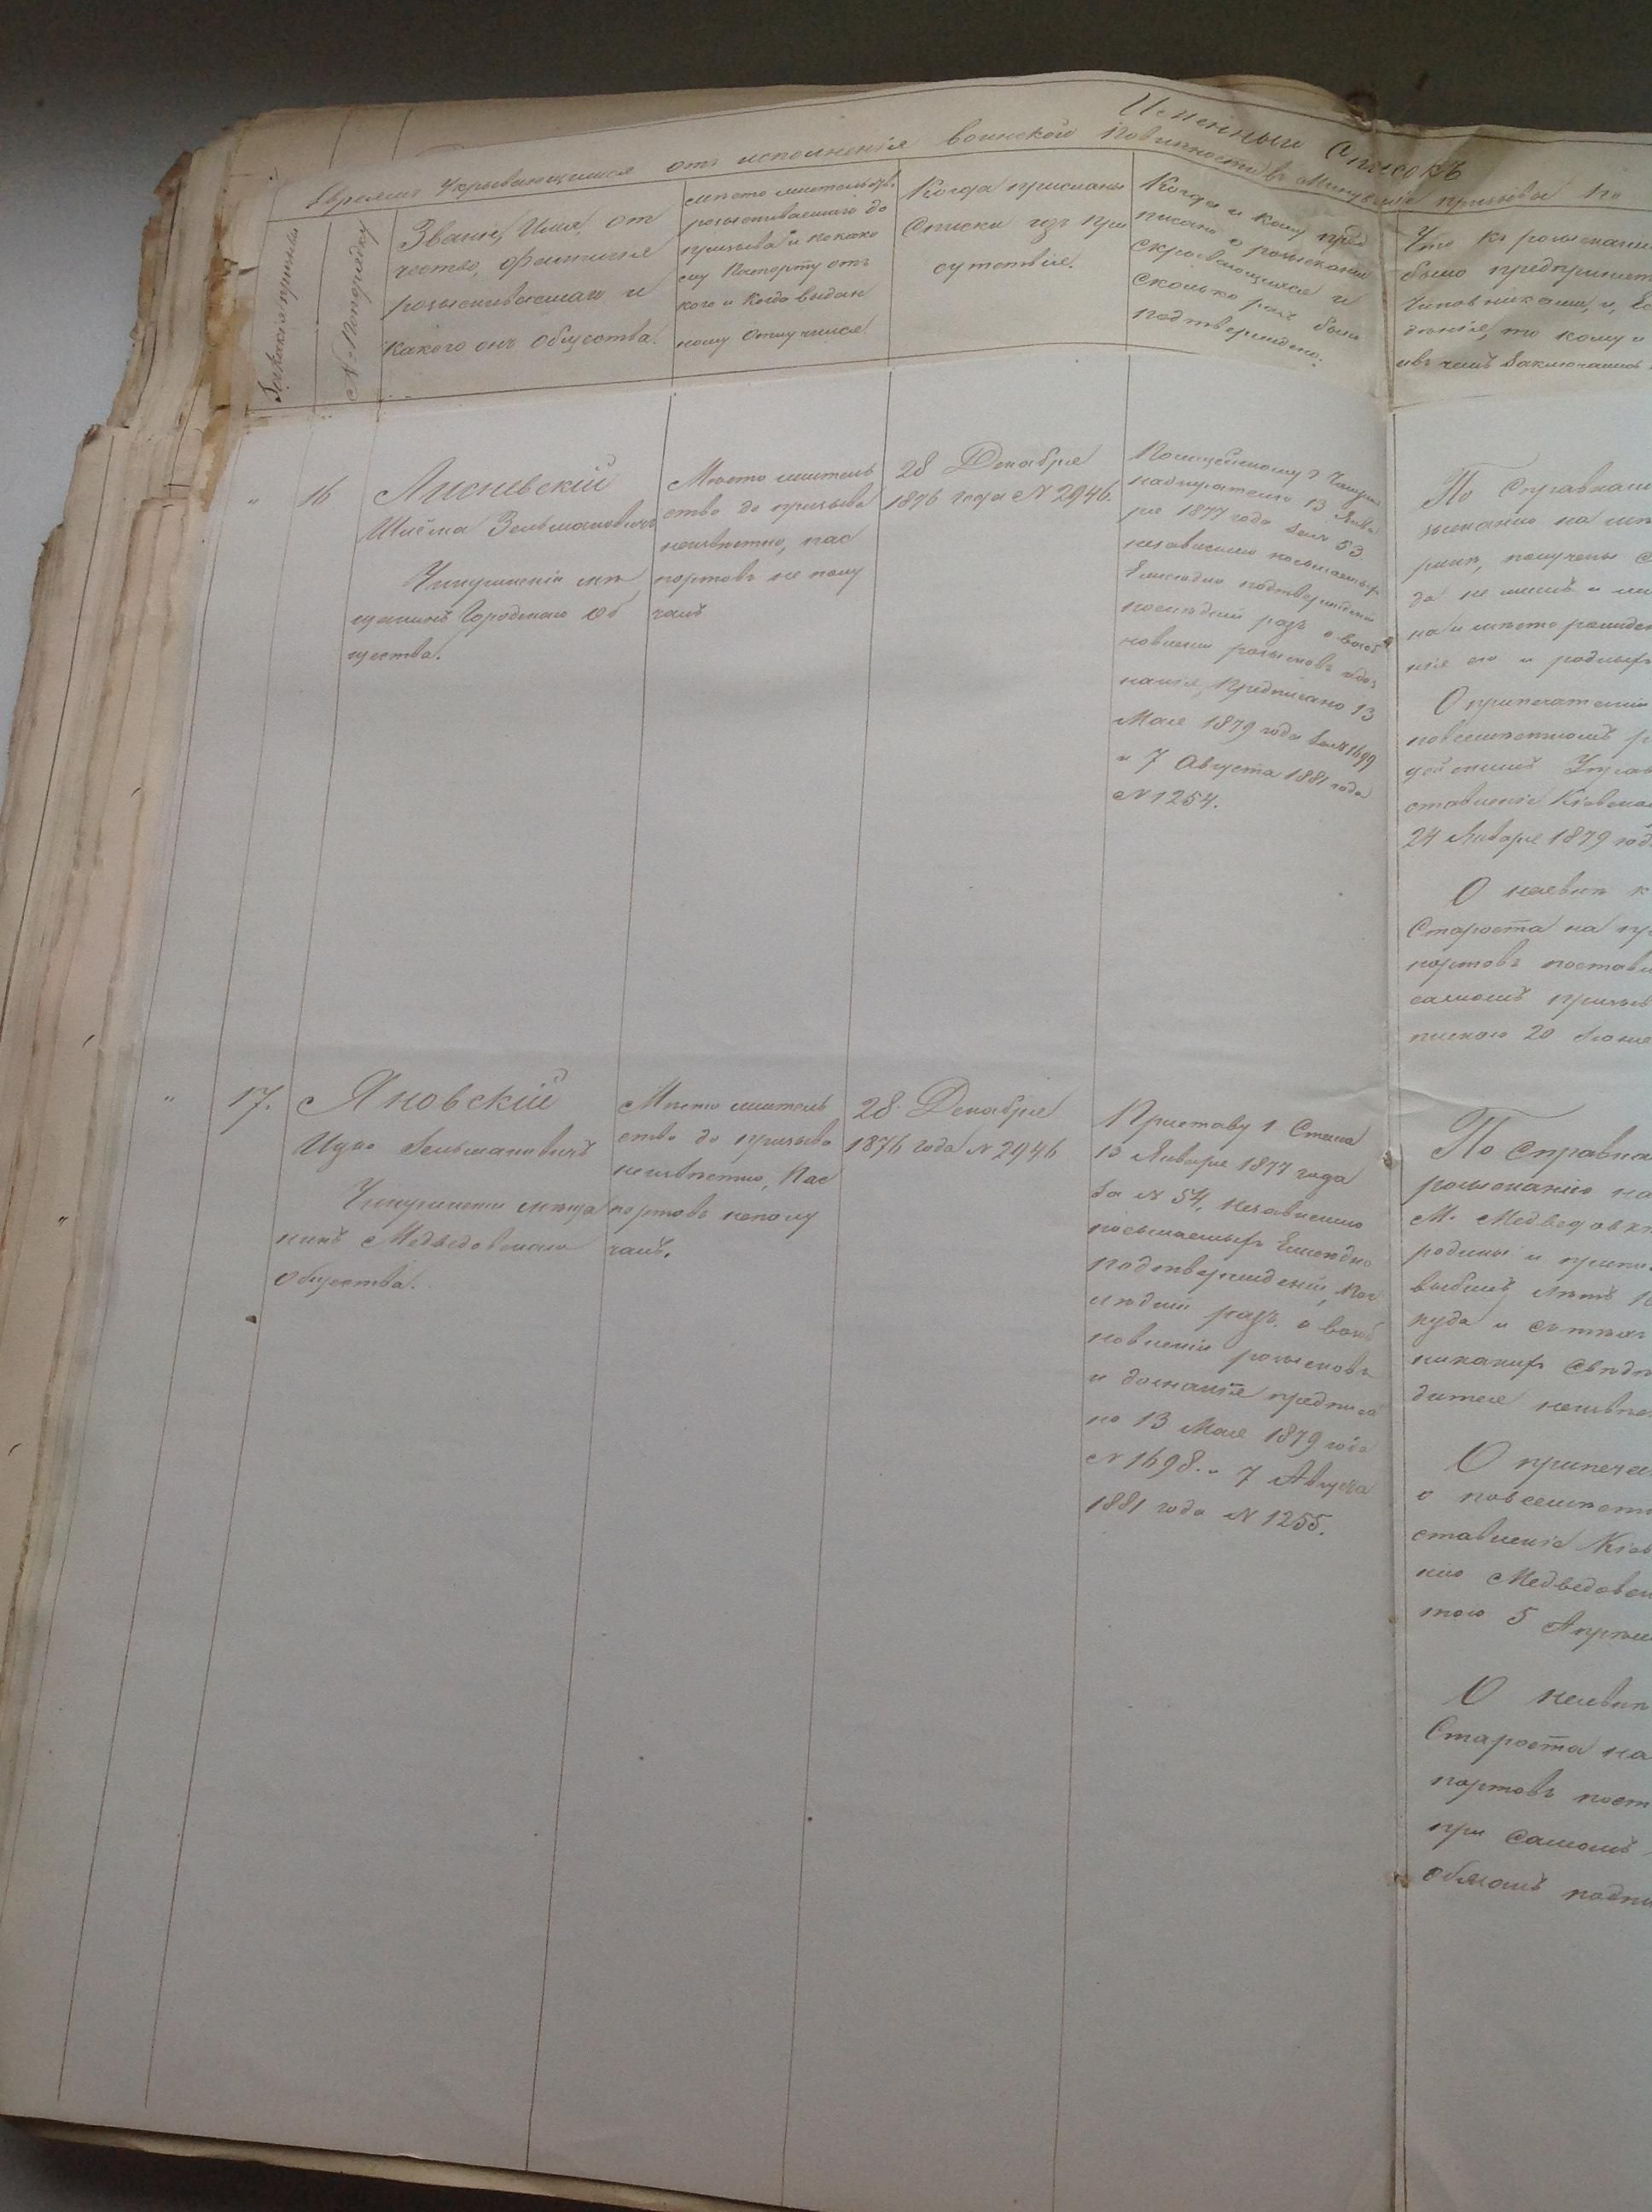 Именный Списокъ
Евреямъ Укрывающимся отъ исполненія воинской Повинности въ Минувшіе призывы по
За какой призывъ
№ по порядку
Званіе, Имя, от
чество, фамилія
розыскиваемаго и
какого онъ общества.
Мѣсто жительства
розыскиваемаго до
призыва и по како
му Паспорту отъ
кого и когда выдан
ному отлучился
Когда присланы
Списки изъ При
сутствія.
Когда и кому пред
писано о розысканіи
скрывающихся и
сколько разъ было
подтверждено.
Что къ розысканію
было предпринято
чиновниками, и,
дѣнія, то кому и
и въ чемъ заключались
" 16
Лисневскій
Шиёма Зельмановичъ
Чигиринскій мѣ
щанинъ Городскаго Об
щества.
Мѣсто житель
ство до призыва
неизвѣстно, пас
портовъ не полу
чалъ
28 Декабря
1876 года № 2946.
Полицейскому
надзирателю 13 Янва
ря 1877 года за № 53
независимо посылаемыхъ
Ежегодно подтвержденій
послѣдній разъ о возоб
новленіи розысковъ и доз
нанія, Предписано 13
Мая 1879 года за № 1699
и 7 Августа 1881 года
№ 1254.
По Справкамъ
зысканію на
получены
да не имѣлъ и
на и мѣсто
нія его и родныхъ
О припечатаніи
повсемѣстномъ
ставленіе Кіевско
24 Января 1879 год
О неявкѣ
Староста на
портовъ
самомъ призыв
пискою 20
" 17.
Яновскій
Ицко Зельмановичъ
Чигиринскій мѣща
нинъ Медведовскаго
общества.
Мѣсто житель
ство до призыва
неизвѣстно, Пас
портовъ не полу
чалъ.
28 Декабря
1876 года № 2946
Приставу 1 Стана
13 Января 1877 года
за № 54, независимо
посылаемыхъ Ежегодно
подтвержденій, пос
лѣдній разъ о возоб
новленіи розысковъ
и дознанія предписа
но 13 Мая 1879 года
№ 1698. и 7 Августа
1881 года № 1255.
По Справка
розысканію на
М. Медведовкѣ
родины и
выбылъ лѣтъ
куда и
никакихъ свѣдѣ
дителе неизвѣ
О припеча
о повсемѣстн
ставленіе Кіев
нію Медведовск
того 5 Апрѣля
О неявкѣ
Староста на
портовъ
при самомъ